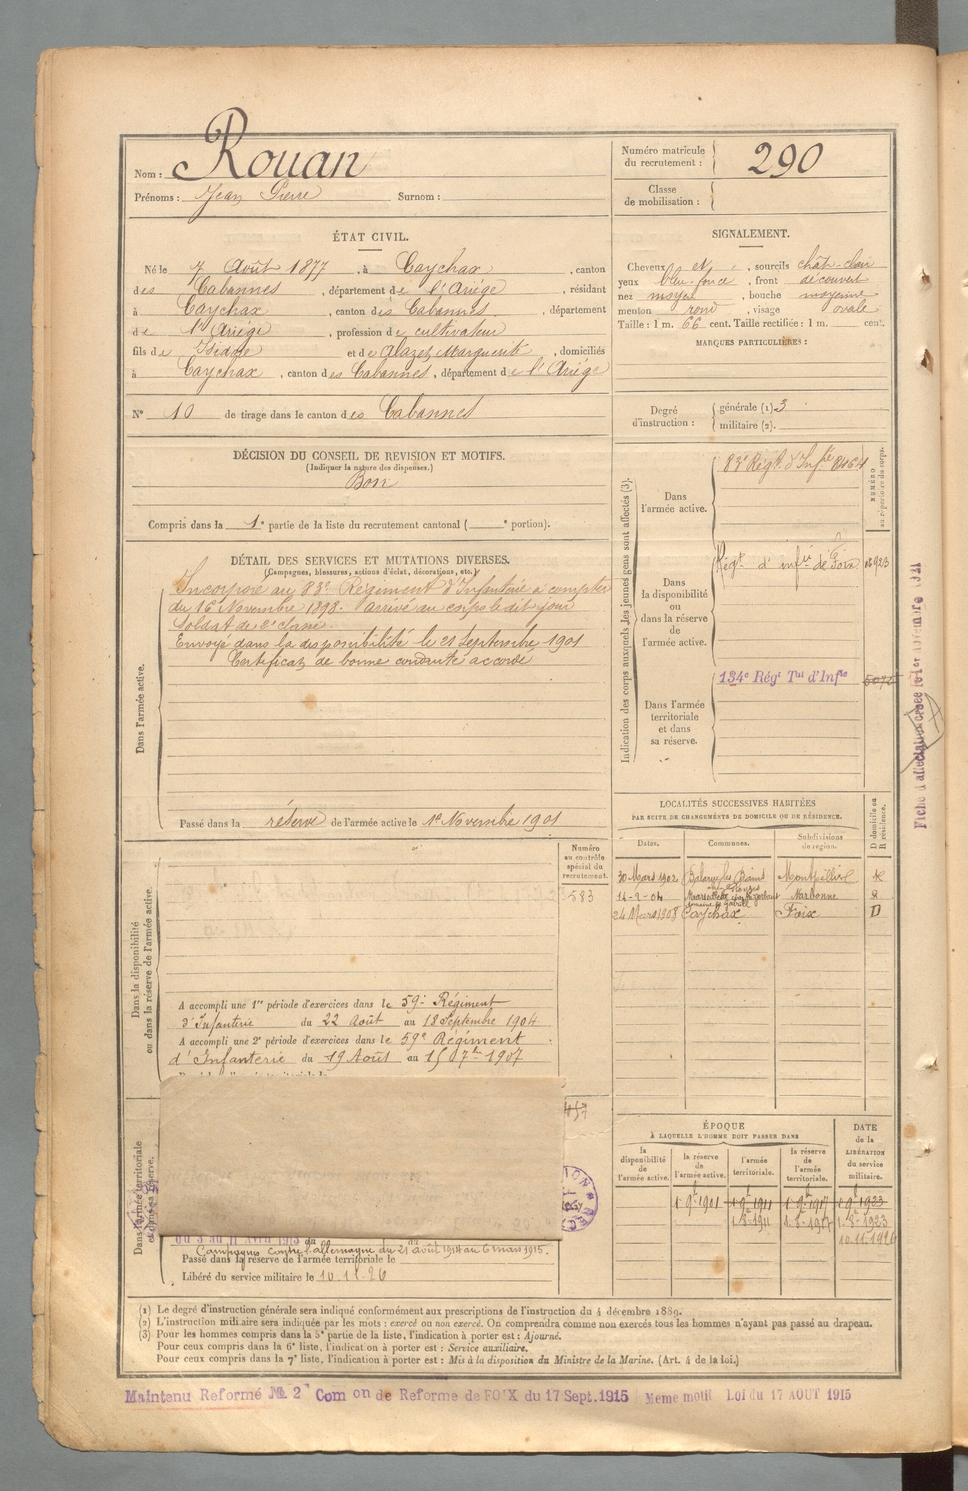 Nom : Rouan
Prénoms : Jean Pierre Surnom :
Numéro matricule du recrutement : 290
Classe de mobilisation :
ÉTAT CIVIL.
Né le 7 Août 1877, à Caychax, canton
des Cabannes, département de l'Ariège, résidant
à Caychax, canton des Cabannes, département
de l'Ariège, profession de cultivateur
fils de Isidore et de Alazet Marguerite, domiciliés
à Caychax, canton des Cabannes, département de l'Ariège
N° 10 de tirage dans le canton des Cabannes
SIGNALEMENT.
Cheveux et , sourcils chât-clair
yeux bleu foncé, front découvert
nez moyen, bouche moyenne
menton rond, visage ovale
Taille : 1 m. 66 cent. Taille rectifiée : 1 m. cent.
MARQUES PARTICULIÈRES :
Degré d'instruction : générale (1) 3
militaire (2).
DÉCISION DU CONSEIL DE REVISION ET MOTIFS.
(Indiquer la nature des dispenses.)
Bon
Compris dans la 1e partie de la liste du recrutement cantonal ( e portion).
DÉTAIL DES SERVICES ET MUTATIONS DIVERSES.
(Campagnes, blessures, actions d'éclat, décorations, etc.)
Dans l'armée active.
Incorporé au 83e Régiment d'Infanterie à compter
du 16 Novembre 1898. Arrivé au corps le dit jour
Soldat de 2e classe.
Envoyé dans la disponibilité le 21 Septembre 1901
Certificat de bonne conduite accordé
Passé dans la réserve de l'armée active le 1er Novembre 1901
Indication des corps auxquels les jeunes gens sont affectés (3).
NUMÉRO au répertoire du corps.
Dans l'armée active.
83e Régt. d'Infie 8464
Dans la disponibilité ou dans la réserve de l'armée active.
Régt d'infie de Foix
Dans l'armée territoriale et dans sa réserve.
134e Régt Tal d'Infie
Fiche d'affectation créée le 1er novembre
LOCALITÉS SUCCESSIVES HABITÉES
PAR SUITE DE CHANGEMENTS DE DOMICILE OU DE RÉSIDENCE.
Dates. Communes. Subdivisions de région. D domicile ou R résidence.
30 Mars 1902 Balaruc les Bains Montpellier R
14-2-04 Narbonne R
24 Mars 1908 Caychax Foix D
Dans la disponibilité ou dans la réserve de l'armée active.
Numéro au contrôle spécial du recrutement.
583
A accompli une 1re période d'exercices dans le 59e Régiment
d'Infanterie du 22 Août au 18 Septembre 1904
A accompli une 2e période d'exercices dans le 59e Régiment
d'Infanterie du 19 Août au 15 7bre 1907
Dans l'armée territoriale et dans sa réserve.
du 3 au 11 Avril 1913
Campagnes contre l'allemagne du 21 août 1914 au 6 mars 1915.
Passé dans la réserve de l'armée territoriale le
Libéré du service militaire le 10.11.26
ÉPOQUE
À LAQUELLE L'HOMME DOIT PASSER DANS
la disponibilité de l'armée active. la réserve de l'armée active. l'armée territoriale. la réserve de l'armée territoriale. DATE de la LIBÉRATION du service militaire.
1 9bre 1901 1 9bre 1911 1 9bre 1917 1 9bre 1923
1.8.1911 1.8.1917 1.8.1923
10.11.1926
(1) Le degré d'instruction générale sera indiqué conformément aux prescriptions de l'instruction du 4 décembre 1889.
(2) L'instruction militaire sera indiquée par les mots : exercé ou non exercé. On comprendra comme non exercés tous les hommes n'ayant pas passé au drapeau.
(3) Pour les hommes compris dans la 5e partie de la liste, l'indication à porter est : Ajourné.
Pour ceux compris dans la 6e liste, l'indication à porter est : Service auxiliaire.
Pour ceux compris dans la 7e liste, l'indication à porter est : Mis à la disposition du Ministre de la Marine. (Art. 4 de la loi.)
Maintenu Reformé No 2 Comon de Reforme de FOIX du 17 Sept. 1915 Meme motif Loi du 17 AOUT 1915